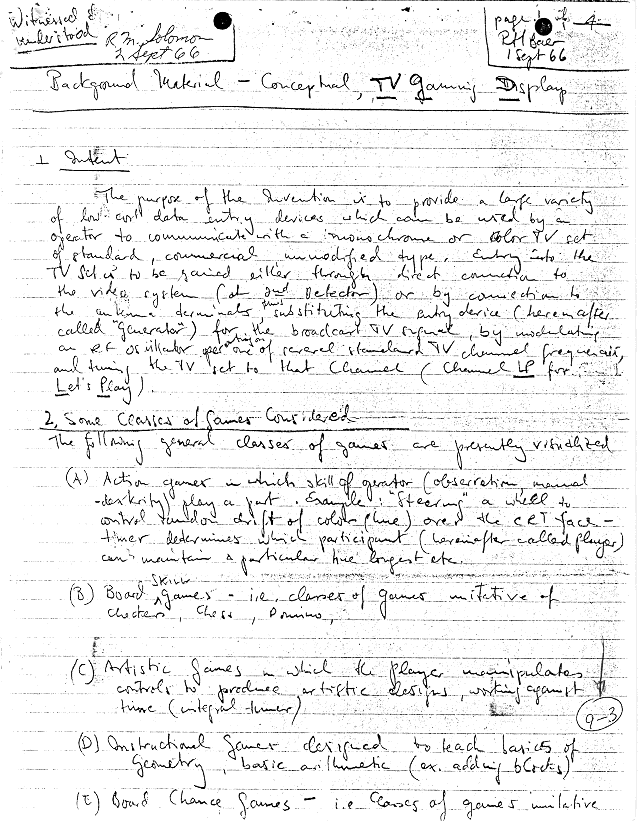 Witnessed &
understood
R.M. Solomon
2 Sept 66
page 1 of 4
RH Baer
1 Sept 66
Background Material - Conceptual, TV Gaming Display
1. Intent
The purpose of the Invention is to provide a large variety
of low-cost data entry devices which can be used by an
operator to communicate with a monochrome or color TV set
of standard, commercial, unmodified type. Entry into the
TV Set is to be gained either through direct connection to
the video system (at 2nd Detector) or by connection to
the antenna terminals thus substituting the entry device (hereinafter
called "Generator") for the broadcast TV signal, by modulating
an RF oscillator operating on one of several standard TV channel frequencies,
and tuning the TV set to that Channel (Channel LP for
Let's Play).
2. Some Classes of Games Considered
The following general classes of games are presently visualized
(A) Action games in which skill of operator (observation, manual
-dexterity) play a part. Example: "Steering" a wheel to
control random drift of color (hue) over the CRT face-
timer determines which participant (hereinafter called player)
can maintain a particular hue longest etc.
(B) Board Skill Games - i.e. classes of games imitative of
checkers, Chess, Domino,
(C) Artistic Games in which the Player manipulates
controls to produce artistic designs, working against
time (integral timer)
9-3
(D) Instructional Games designed to teach basics of
Geometry, basic arithmetic (ex. adding blocks)
(E) Board Chance Games - i.e Classes of games imitative